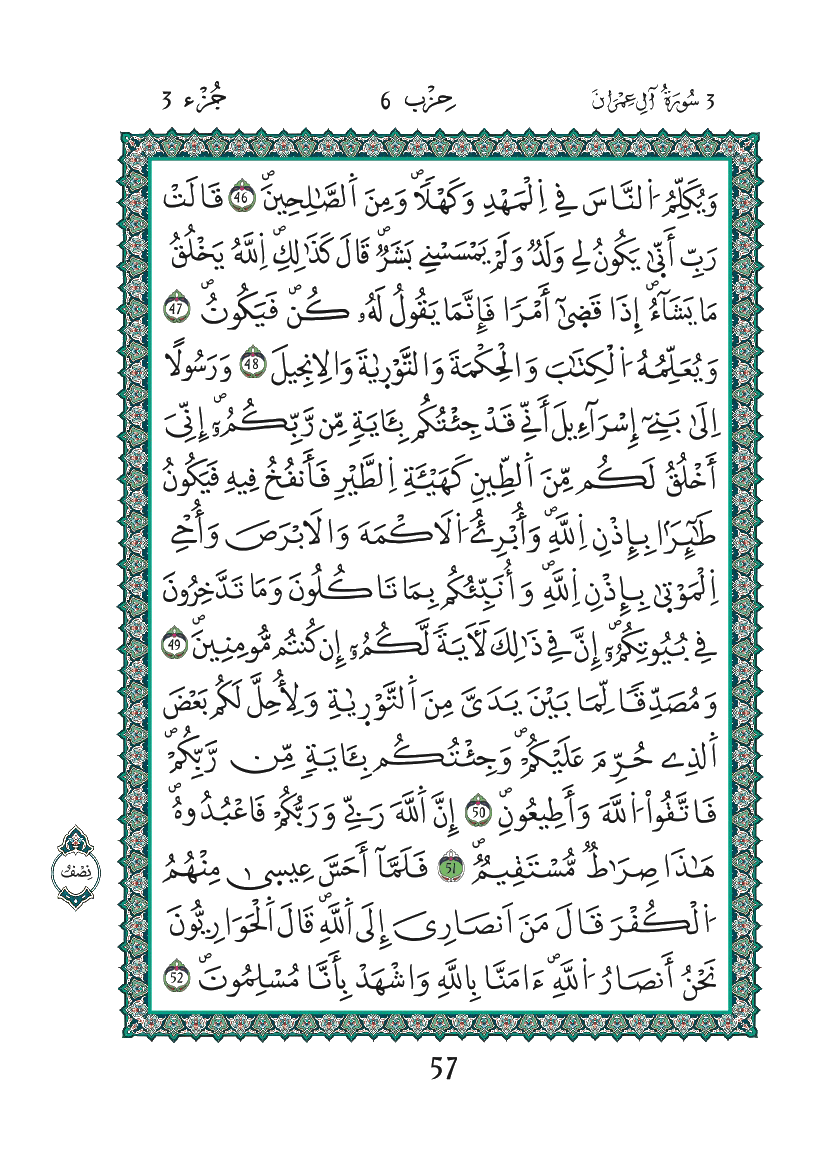 3 سُورَةُ آلِ عِمْرَانَ
حِزْب 6
جُزْء 3
وَيُكَلِّمُ اُ۬لنَّاسَ فِے اِ۬لْمَهْدِ وَكَهْلاٗۖ وَمِنَ اَ۬لصَّٰلِحِينَۖ 46 قَالَتْ
رَبِّ أَنّ۪يٰ يَكُونُ لِے وَلَدٞ وَلَمْ يَمْسَسْنِے بَشَرٞۖ قَالَ كَذَٰلِكِۖ اِ۬للَّهُ يَخْلُقُ
مَا يَشَآءُۖ اِذَا قَض۪ىٰٓ أَمْراٗ فَإِنَّمَا يَقُولُ لَهُۥ كُنۖ فَيَكُونُۖ 47
وَيُعَلِّمُهُ اُ۬لْكِتَٰبَ وَالْحِكْمَةَ وَالتَّوْر۪يٰةَ وَالِانجِيلَ 48 وَرَسُولاً
اِلَىٰ بَنِےٓ إِسْرَآءِيلَ أَنِّے قَدْ جِئْتُكُم بِـَٔايَةٖ مِّن رَّبِّكُمُۥٓۖ إِنِّيَ
أَخْلُقُ لَكُم مِّنَ اَ۬لطِّينِ كَهَيْـَٔةِ اِ۬لطَّيْرِ فَأَنفُخُ فِيهِ فَيَكُونُ
طَٰٓئِراَۢ بِإِذْنِ اِ۬للَّهِۖ وَأُبْرِۓُ اُ۬لَاكْمَهَ وَالَابْرَصَ وَأُحْيِ
اِ۬لْمَوْت۪يٰ بِإِذْنِ اِ۬للَّهِۖ وَأُنَبِّئُكُم بِمَا تَاكُلُونَ وَمَا تَدَّخِرُونَ
فِے بُيُوتِكُمُۥٓۖ إِنَّ فِے ذَٰلِكَ لَأٓيَةٗ لَّكُمُۥٓ إِن كُنتُم مُّومِنِينَۖ 49
وَمُصَدِّقاٗ لِّمَا بَيْنَ يَدَيَّ مِنَ اَ۬لتَّوْر۪يٰةِ وَلِأُحِلَّ لَكُم بَعْضَ
اَ۬لذِے حُرِّمَ عَلَيْكُمْۖ وَجِئْتُكُم بِـَٔايَةٖ مِّن رَّبِّكُمْۖ
فَاتَّقُواْ اُ۬للَّهَ وَأَطِيعُونِۖ 50 إِنَّ اَ۬للَّهَ رَبِّے وَرَبُّكُمْ فَاعْبُدُوهُۖ
هَٰذَا صِرَٰطٞ مُّسْتَقِيمٞۖ 51 فَلَمَّآ أَحَسَّ عِيس۪يٰ مِنْهُمُ
اُ۬لْكُفْرَ قَالَ مَنَ اَنصَارِيَ إِلَى اَ۬للَّهِۖ قَالَ اَ۬لْحَوَارِيُّونَ
نَحْنُ أَنصَارُ اُ۬للَّهِۖ ءَامَنَّا بِاللَّهِ وَاشْهَدْ بِأَنَّا مُسْلِمُونَۖ 52
نِصْفُ
57